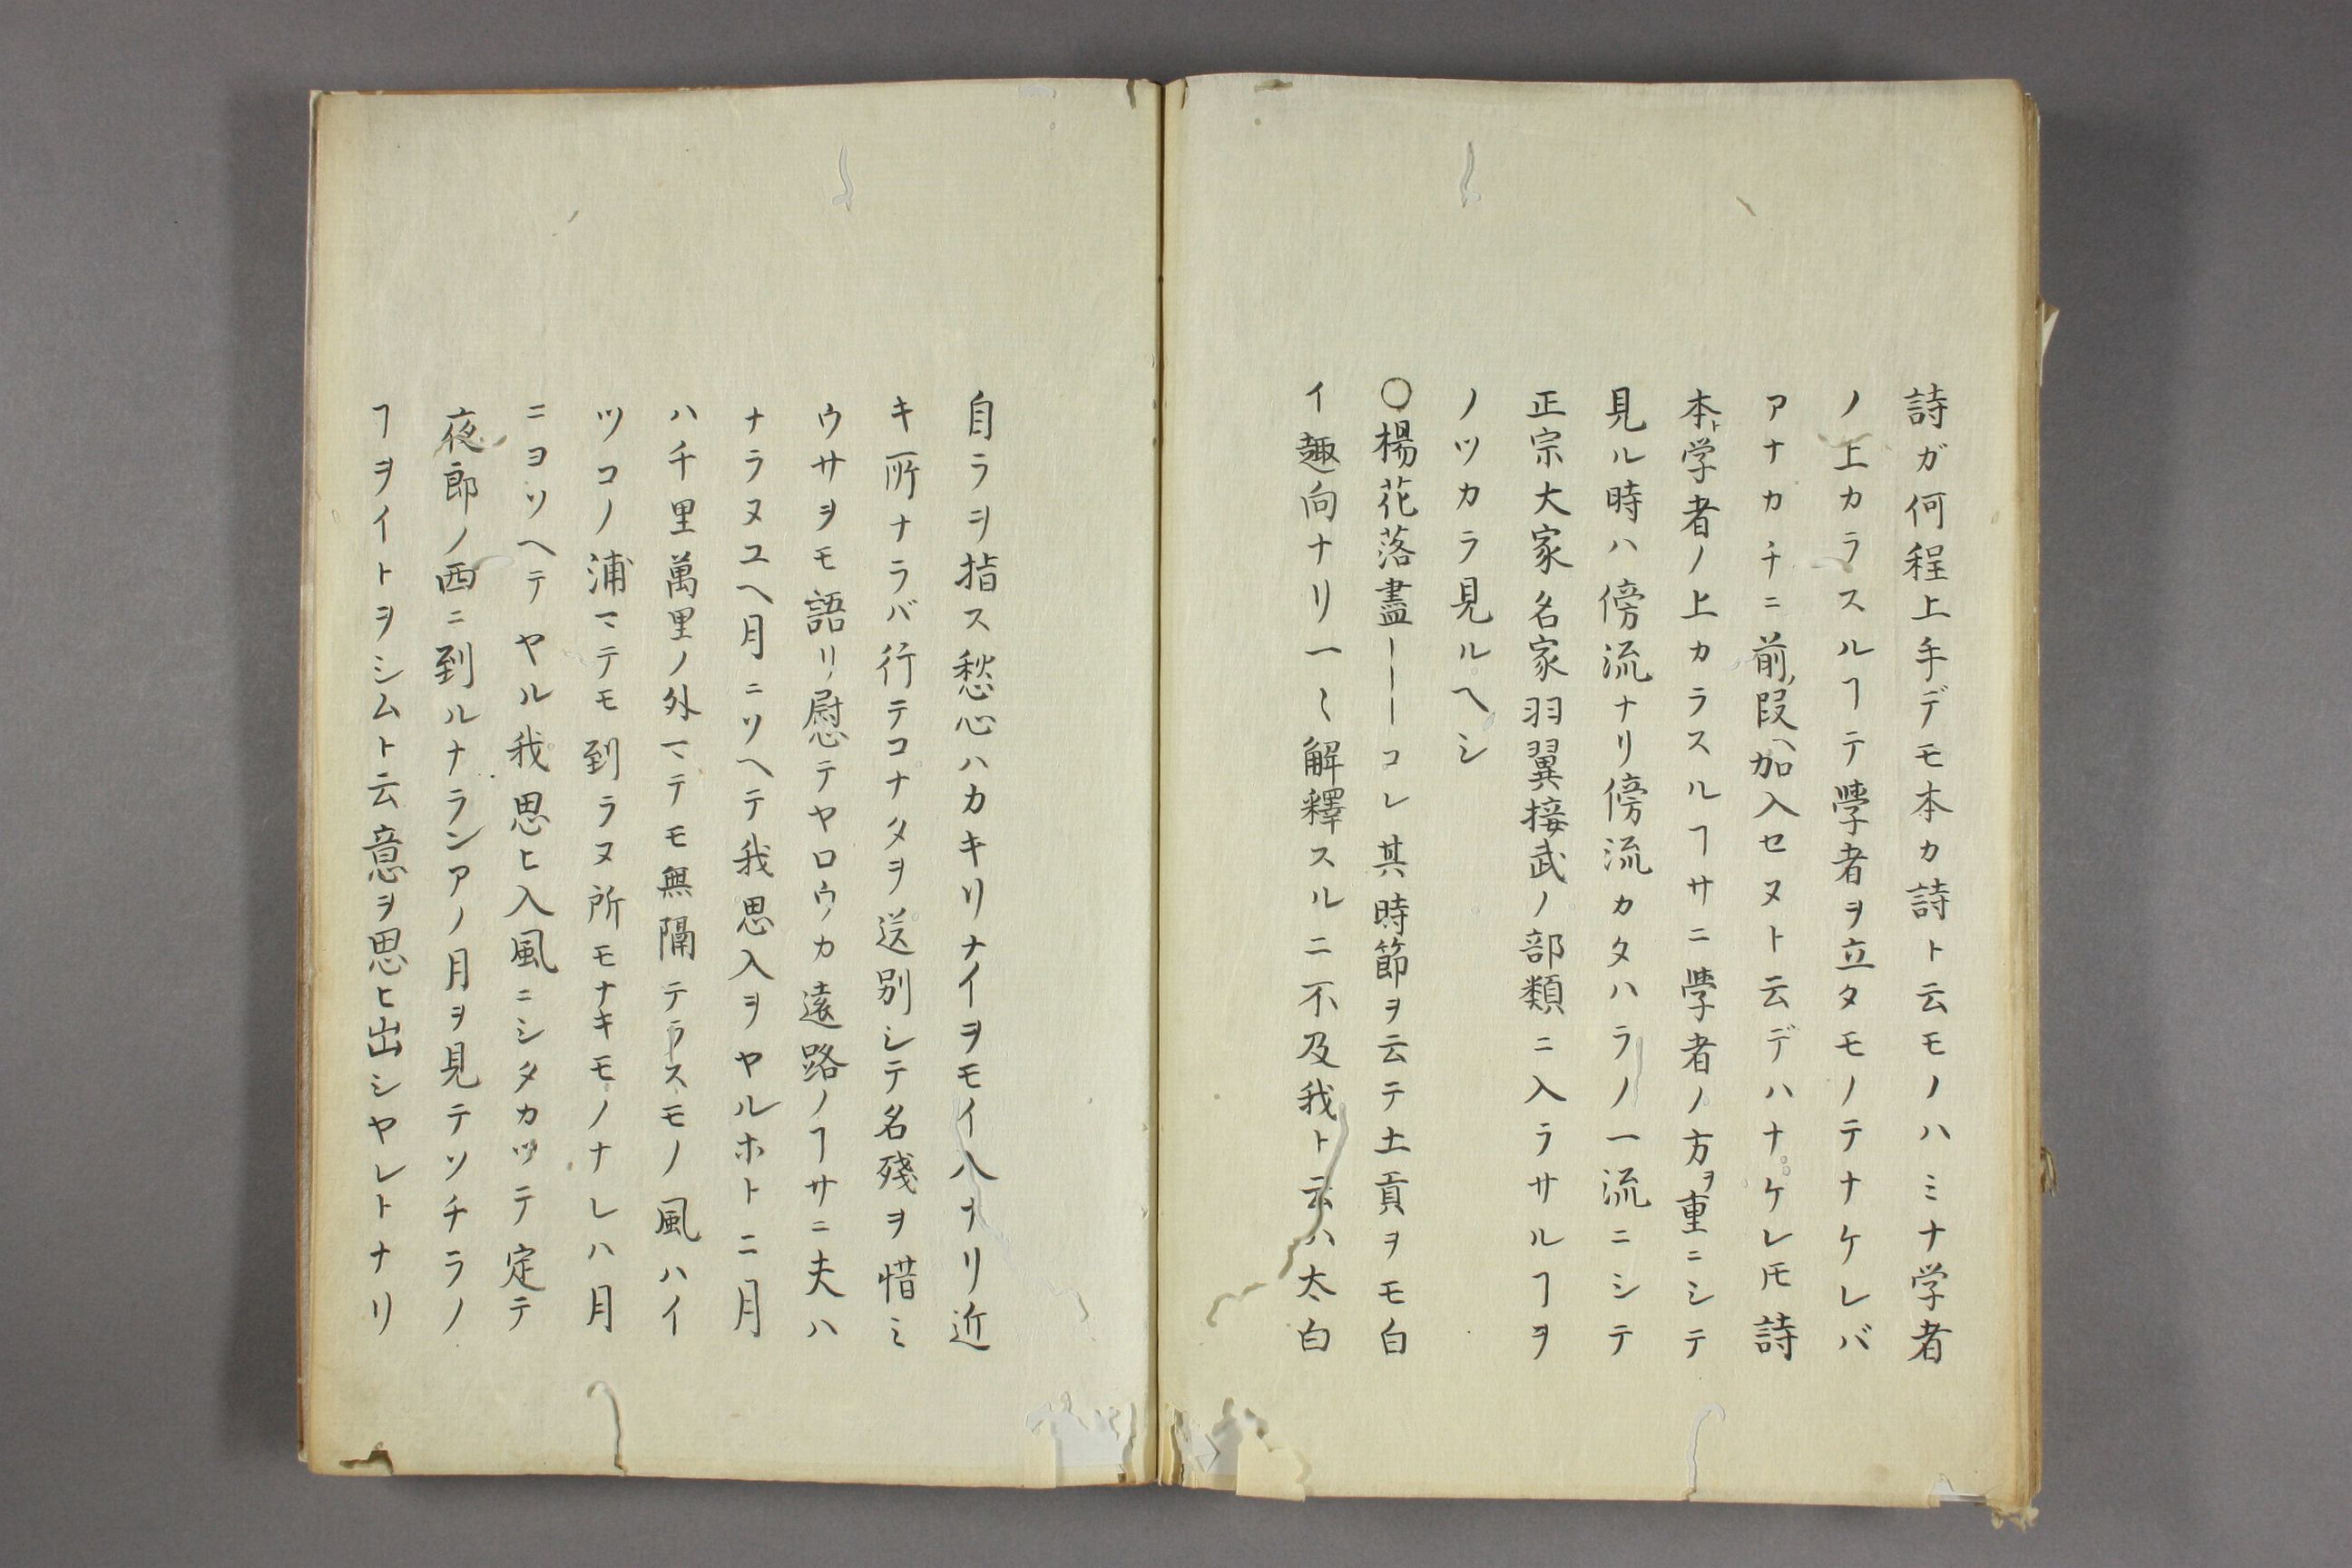 詩ガ何程上手デモ本カ詩ト云モノハミナ学者
ノ上カラスルヿテ學者ヲ立タモノテナケレバ
アナカチニ前ノ段ヘ加入セヌト云デハナケレ𪜈詩
本ト学者ノ上カラスルヿサニ學者ノ方ヲ重ニシテ
見ル時ハ傍流ナリ傍流カタハラノ一流ニシテ
正宗大家名家羽翼接武ノ部類ニ入ラサルヿヲ
ノツカラ見ルヘシ
○楊花落盡｜｜｜コレ其時節ヲ云テ土貢ヲモ白
イ趣向ナリ一〻解釋スルニ不及我ト云ハ太白
自ラヲ指ス愁心ハカキリナイヲモイ入ナリ近
キ所ナラバ行テコナタヲ送別シテ名殘ヲ惜ミ
ウサヲモ語リ慰テヤロウカ遠路ノヿサニ夫ハ
ナラヌユヘ月ニソヘテ我思入ヲヤルホトニ月
ハ千里萬里ノ外マテモ無隔テラスモノ風ハイ
ツコノ浦マテモ到ラヌ所モナキモノナレハ月
ニヨソヘテヤル我思ヒ入風ニシタカツテ定テ
夜郎ノ西ニ到ルナランアノ月ヲ見テソチラノ
ヿヲイトヲシムト云意ヲ思ヒ出シヤレトナリ